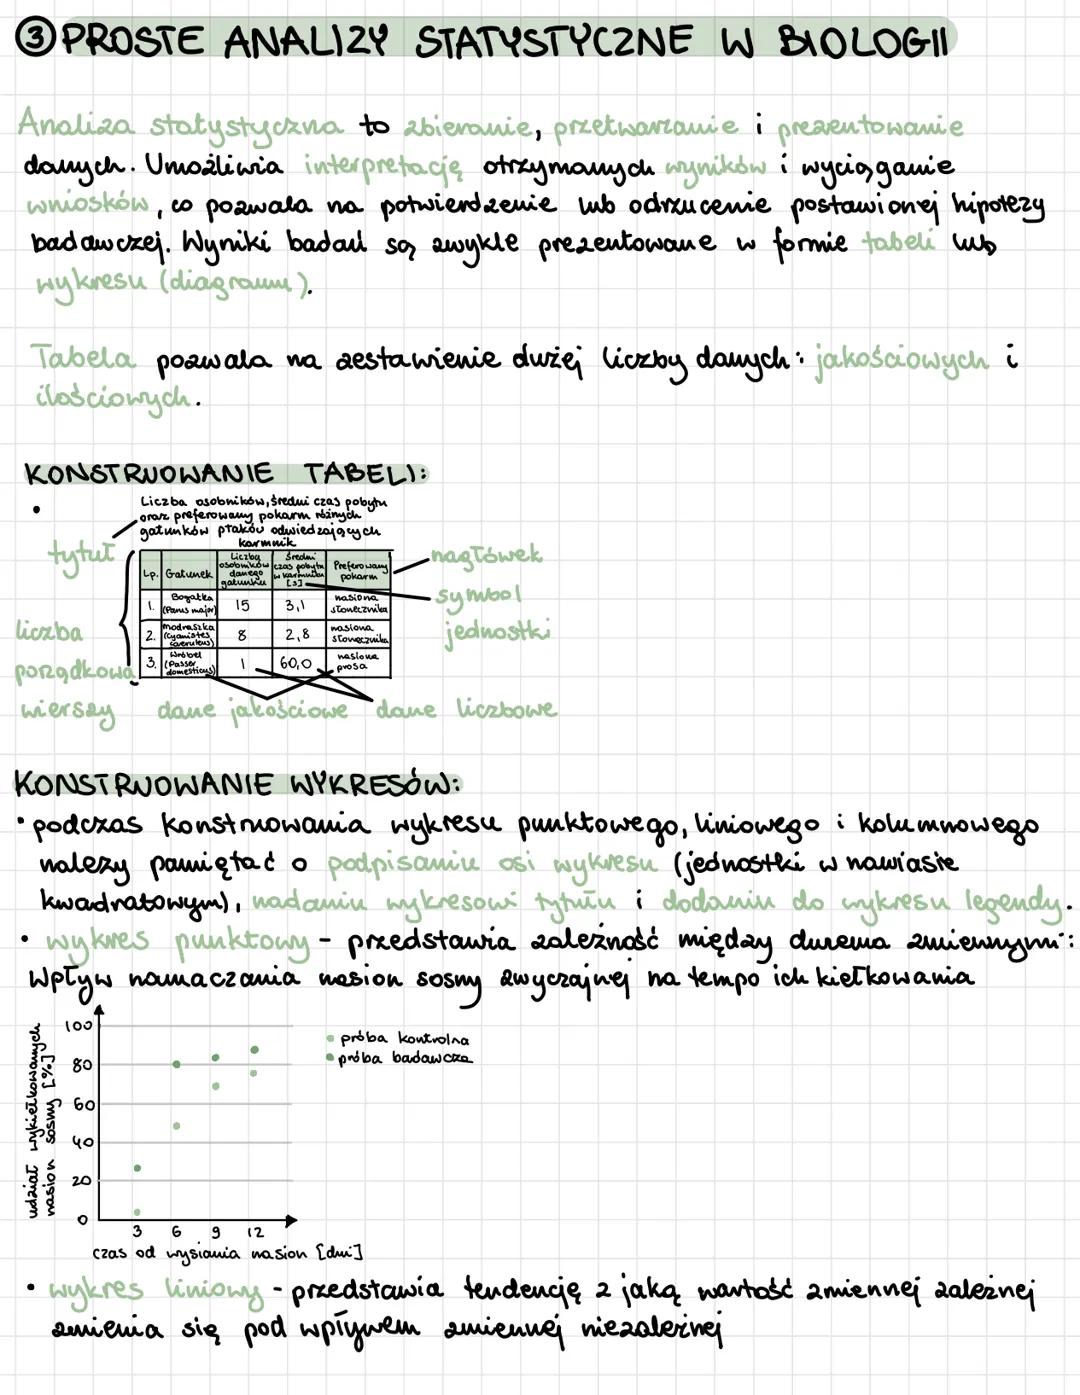 ③ PROSTE ANALIZY STATYSTYCZNE W BIOLOGII
Analiza statystyczna to zbieranie, przetwarzanie i prezentowanie
danych. Umożliwia interpretację otrzymanych wyników i wyciąganie
wniosków, co pozwala na potwierdzenie lub odrzucenie postawionej hipotezy
badawczej. Wyniki badań są zwykle prezentowane w formie tabeli lub
wykresu (diagramu).
Tabela pozwala na zestawienie dużej liczby danych: jakościowych i
ilościowych.
KONSTRUOWANIE TABELI:
•
Liczba osobników, średni czas pobytu
oraz preferowany pokarm różnych
gatunków ptaków odwiedzających
karmnik
tytuł
Lp. Gatunek Liczba osobników danego gatunku Średni czas pobytu w karmniku [s] Preferowany pokarm
nagłówek
1. Bogatka (Parus major) 15 3,1 nasiona słonecznika
symbol
jednostki
2. modraszka (Cyanistes caeruleus) 8 2,8 nasiona słonecznika
3. Wróbel (Passer domesticus) 1 60,0 nasiona prosa
liczba
porządkowa
wierszy
dane jakościowe dane liczbowe
KONSTRUOWANIE WYKRESÓW:
• podczas konstruowania wykresu punktowego, liniowego i kolumnowego
należy pamiętać o podpisaniu osi wykresu (jednostki w nawiasie
kwadratowym), nadaniu wykresowi tytułu i dodaniu do wykresu legendy.
• wykres punktowy - przedstawia zależność między dwiema zmiennymi:
Wpływ namaczania nasion sosny zwyczajnej na tempo ich kiełkowania
udział wykiełkowanych
nasion sosny [%]
100
80
60
40
20
0
3 6 9 12
czas od wysiania nasion [dni]
próba kontrolna
próba badawcza
• wykres liniowy - przedstawia tendencję z jaką wartość zmiennej zależnej
zmienia się pod wpływem zmiennej niezależnej